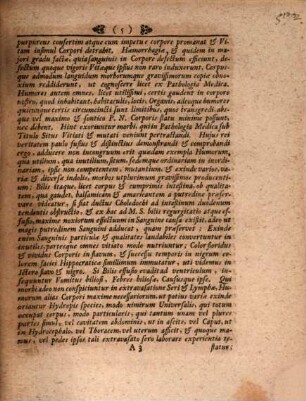 ( 5 )
purpureus confertim atque cum impetu e corpore promanat & Vi-
tam insimul Corpori detrahit. Hæmorrhagia, & quidem in majo-
ri gradu facta, quia sanguinis in Corpore defectum efficiunt, de-
fectum quoque vigoris Vitæque ipsius non raro inducunt. Corpus-
que admodum languidum morborumque gravissimorum copia obno-
xium reddiderunt, ut cognoscere licet ex Pathologia Medica.
Humores autem omnes, licet utilissimi, certis gaudent in corpore
nostro, quod inhabitant, habitaculis, locis, Organis, adeoque humores
ejusmodi certis circumscripti sunt limitibus, quos transgredi absque
vel maximo & sontico P. N. Corporis statu minime possunt,
nec debent. Hinc exoruntur morbi, quos Pathologia Medica sub
Titulo Situs Vitiati & mutati venire pertractandi. Hujus rei
veritatem paulo fusius & distinctius demonstrandi & comprobandi
ergo, adducere non incongruum erit quædam exempla Humorum,
qua Quantitas, qua inutilium, situm, sedemque ordinariam in inordi-
nariam, ipsis non competentem, mutantium, & exinde varios, va-
ria & diversæ indolis, morbos ut plurimum gravissimos producen-
tium. Bilis itaque, licet corpus & cumprimis intestina ob qualita-
tes, qua gaudet, balsamicam & amaricantem a putredine præser-
vare videatur, si fiat ductus Choledochi ad intestinum duodenum
tendentis obstructio, & ex hoc ad M. S. bilis regurgitatio atque ef-
fusio, maximo nocivum effectuum in Sanguine causa existit, adeo ut
magis putredinem Sanguini adducat, quam præservet: Exinde
enim Sanguinis particulæ & qualitates laudabiles convertuntur in
inutiles, partesque omnes vitiato modo nutriuntur; Color floridus
& vividus Corporis in flavum, & successu temporis in nigrum co-
lorem Hippocratico simillimum immutatur, uti videmus in
Ictero flavo & nigro. Si Bilis effusio evadit ad ventriculum, in-
sequuntur Vomitus biliosi, Febres biliosæ, Caususque ipse. Qui
morbi adeo non conspiciuntur in extravasatione Seri & Lymphæ. Hu-
morum alias Corpori maxime necessariorum, ut potius varia exinde
oriantur Hydropis species, modo nimirum Universalis, qui totum
occupat corpus, modo particularis, qui tantum unam vel plures
partes simul, vel cavitatem abdominis, ut in ascite, vel Caput, ut
in Hydrocephalo, vel Thoracem, vel uterum afficit, & quoque ma-
nus, vel pedes ipsos tali extravasato sero laborare experientia te-
A 3
statur;